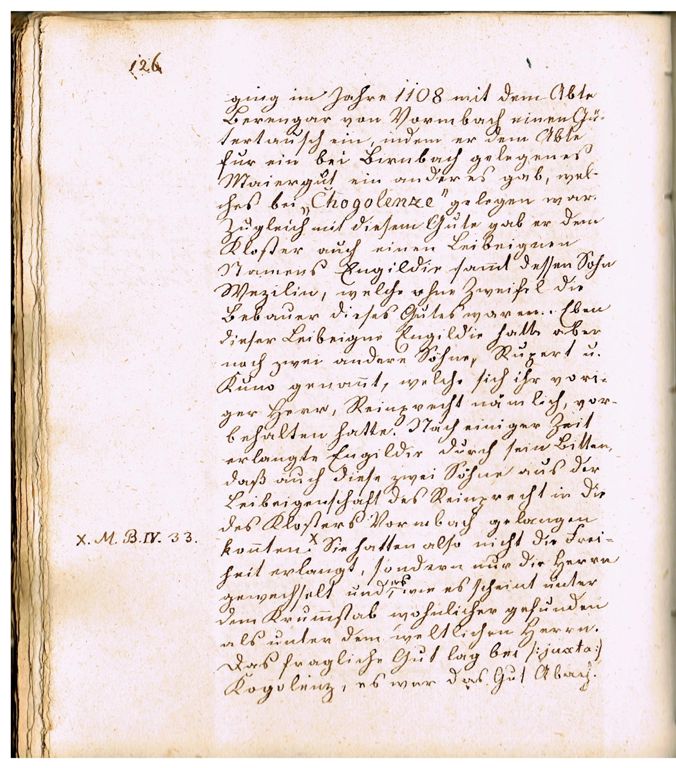 126
ging im Jahre 1108 mit dem Abte
Berengar von Vormbach einen Gü-
tertausch ein, indem er dem Abte
für ein bei Birnbach gelegenes
Maiergut ein anderes gab, wel-
ches bei „Chogolenze" gelegen war.
Zugleich mit diesem Gute gab er dem
Kloster auch einen Leibeignen
Namens Engildie sammt dessen Sohn
Wezilin, welche ohne Zweifel die
Bebauer dieses Gutes waren. Eben
dieser Leibeigne Engildie hatte aber
noch zwei andere Söhne, Rupert u.
Kuno genannt, welche sich ihr vori-
ger Herr, Reinprecht nämlich, vor-
behalten hatte. Nach einiger Zeit
erlangte Engildie durch sein Bitten,
daß auch diese zwei Söhne aus der
Leibeigenschaft des Reinprecht in die
des Klosters Vormbach gelangen
konnten. x Sie hatten also nicht die Frei-
x. M. B. IV. 33.
heit erlangt, sondern nur die Herrn
gewechselt und es, wie es scheint unter
dem Krummstab wohnlicher gefunden
als unter dem weltlichen Herrn.
Das fragliche Gut lag bei /: juxta :/
Kogolenz, es war das Gut Abach.